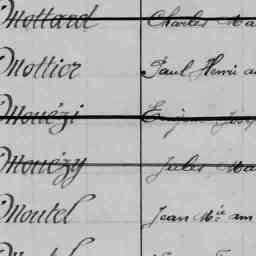 Mottard Charles Ma
Mottier Paul Henri a
Mouézi Eugène Jos
Mouézy Jules Ma
Moutel Jean Mie am